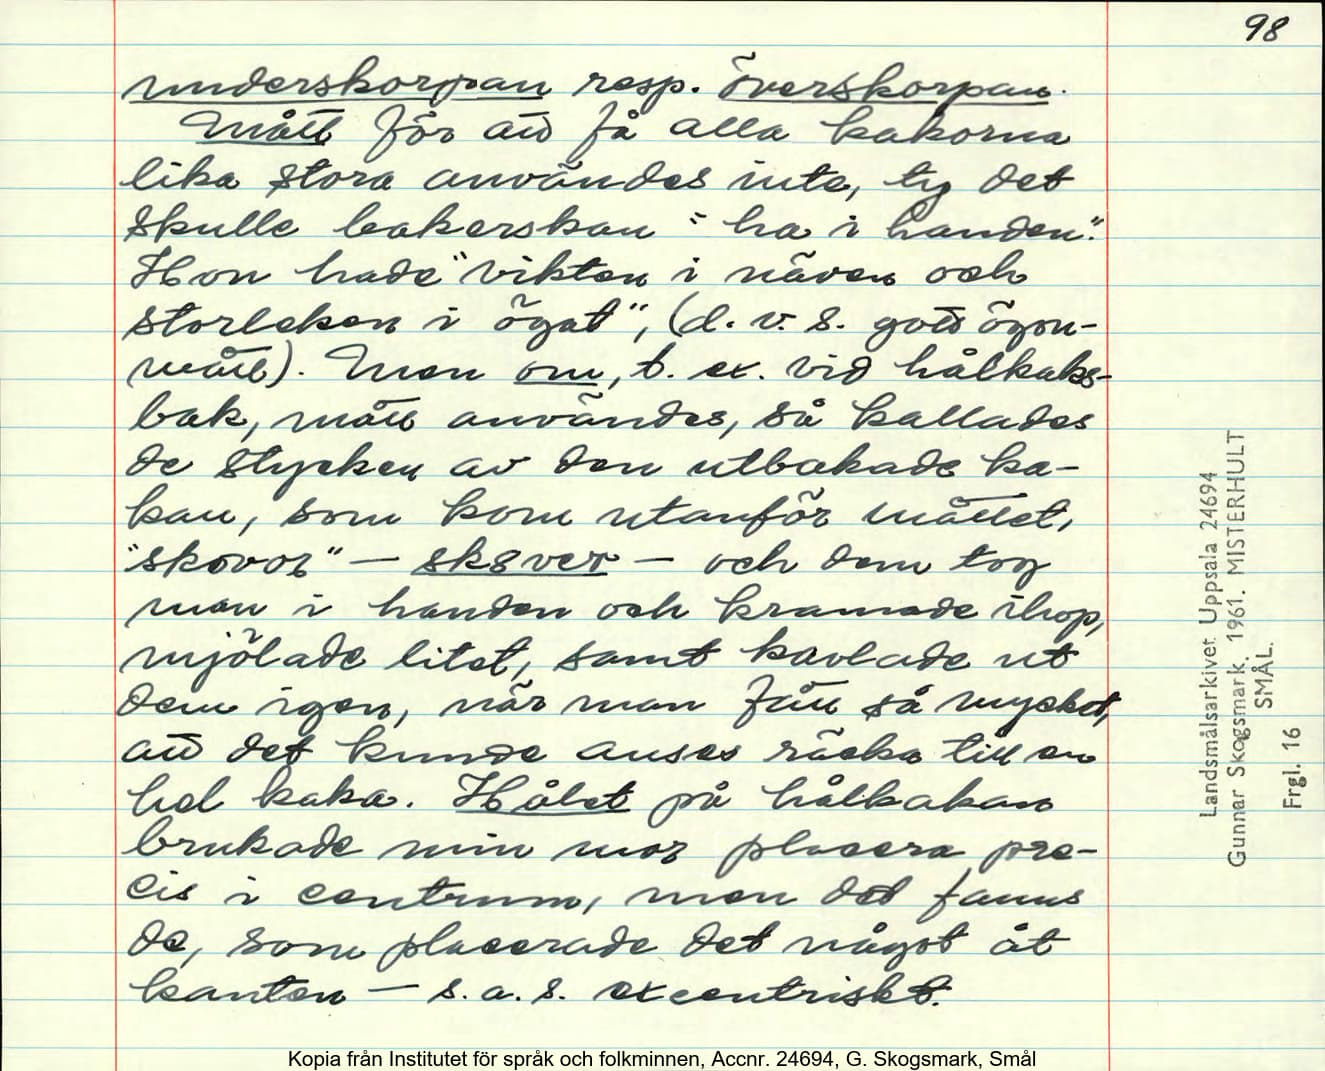 98
underskorpan resp. överskorpan.
Mått för att få alla kakorna
lika stora användes inte, ty det
skulle bakerskan "ha i handen".
Hon hade "vikten i näven och
storleken i ögat", (d.v.s. gott ögon-
mått). Men om, t.ex. vid hålkaks-
bak, mått användes, så kallades
de stycken av den utbakade ka-
kan, som kom utanför måttet,
"skovor" — skover — och dem tog
man i handen och kramade ihop,
mjölade litet, samt kavlade ut
dem igen, när man fått så mycket,
att det kunde anses räcka till en
hel kaka. Hålet på hålkakan
brukade min mor placera pre-
cis i centrum, men det fanns
de, som placerade det något åt
kanten — s.a.s. excentriskt.
Landsmålsarkivet Uppsala 24694
Gunnar Skogsmark. 1961. MISTERHULT
SMÅL.
Frgl. 16
Kopia från Institutet för språk och folkminnen, Accnr. 24694, G. Skogsmark, Smål